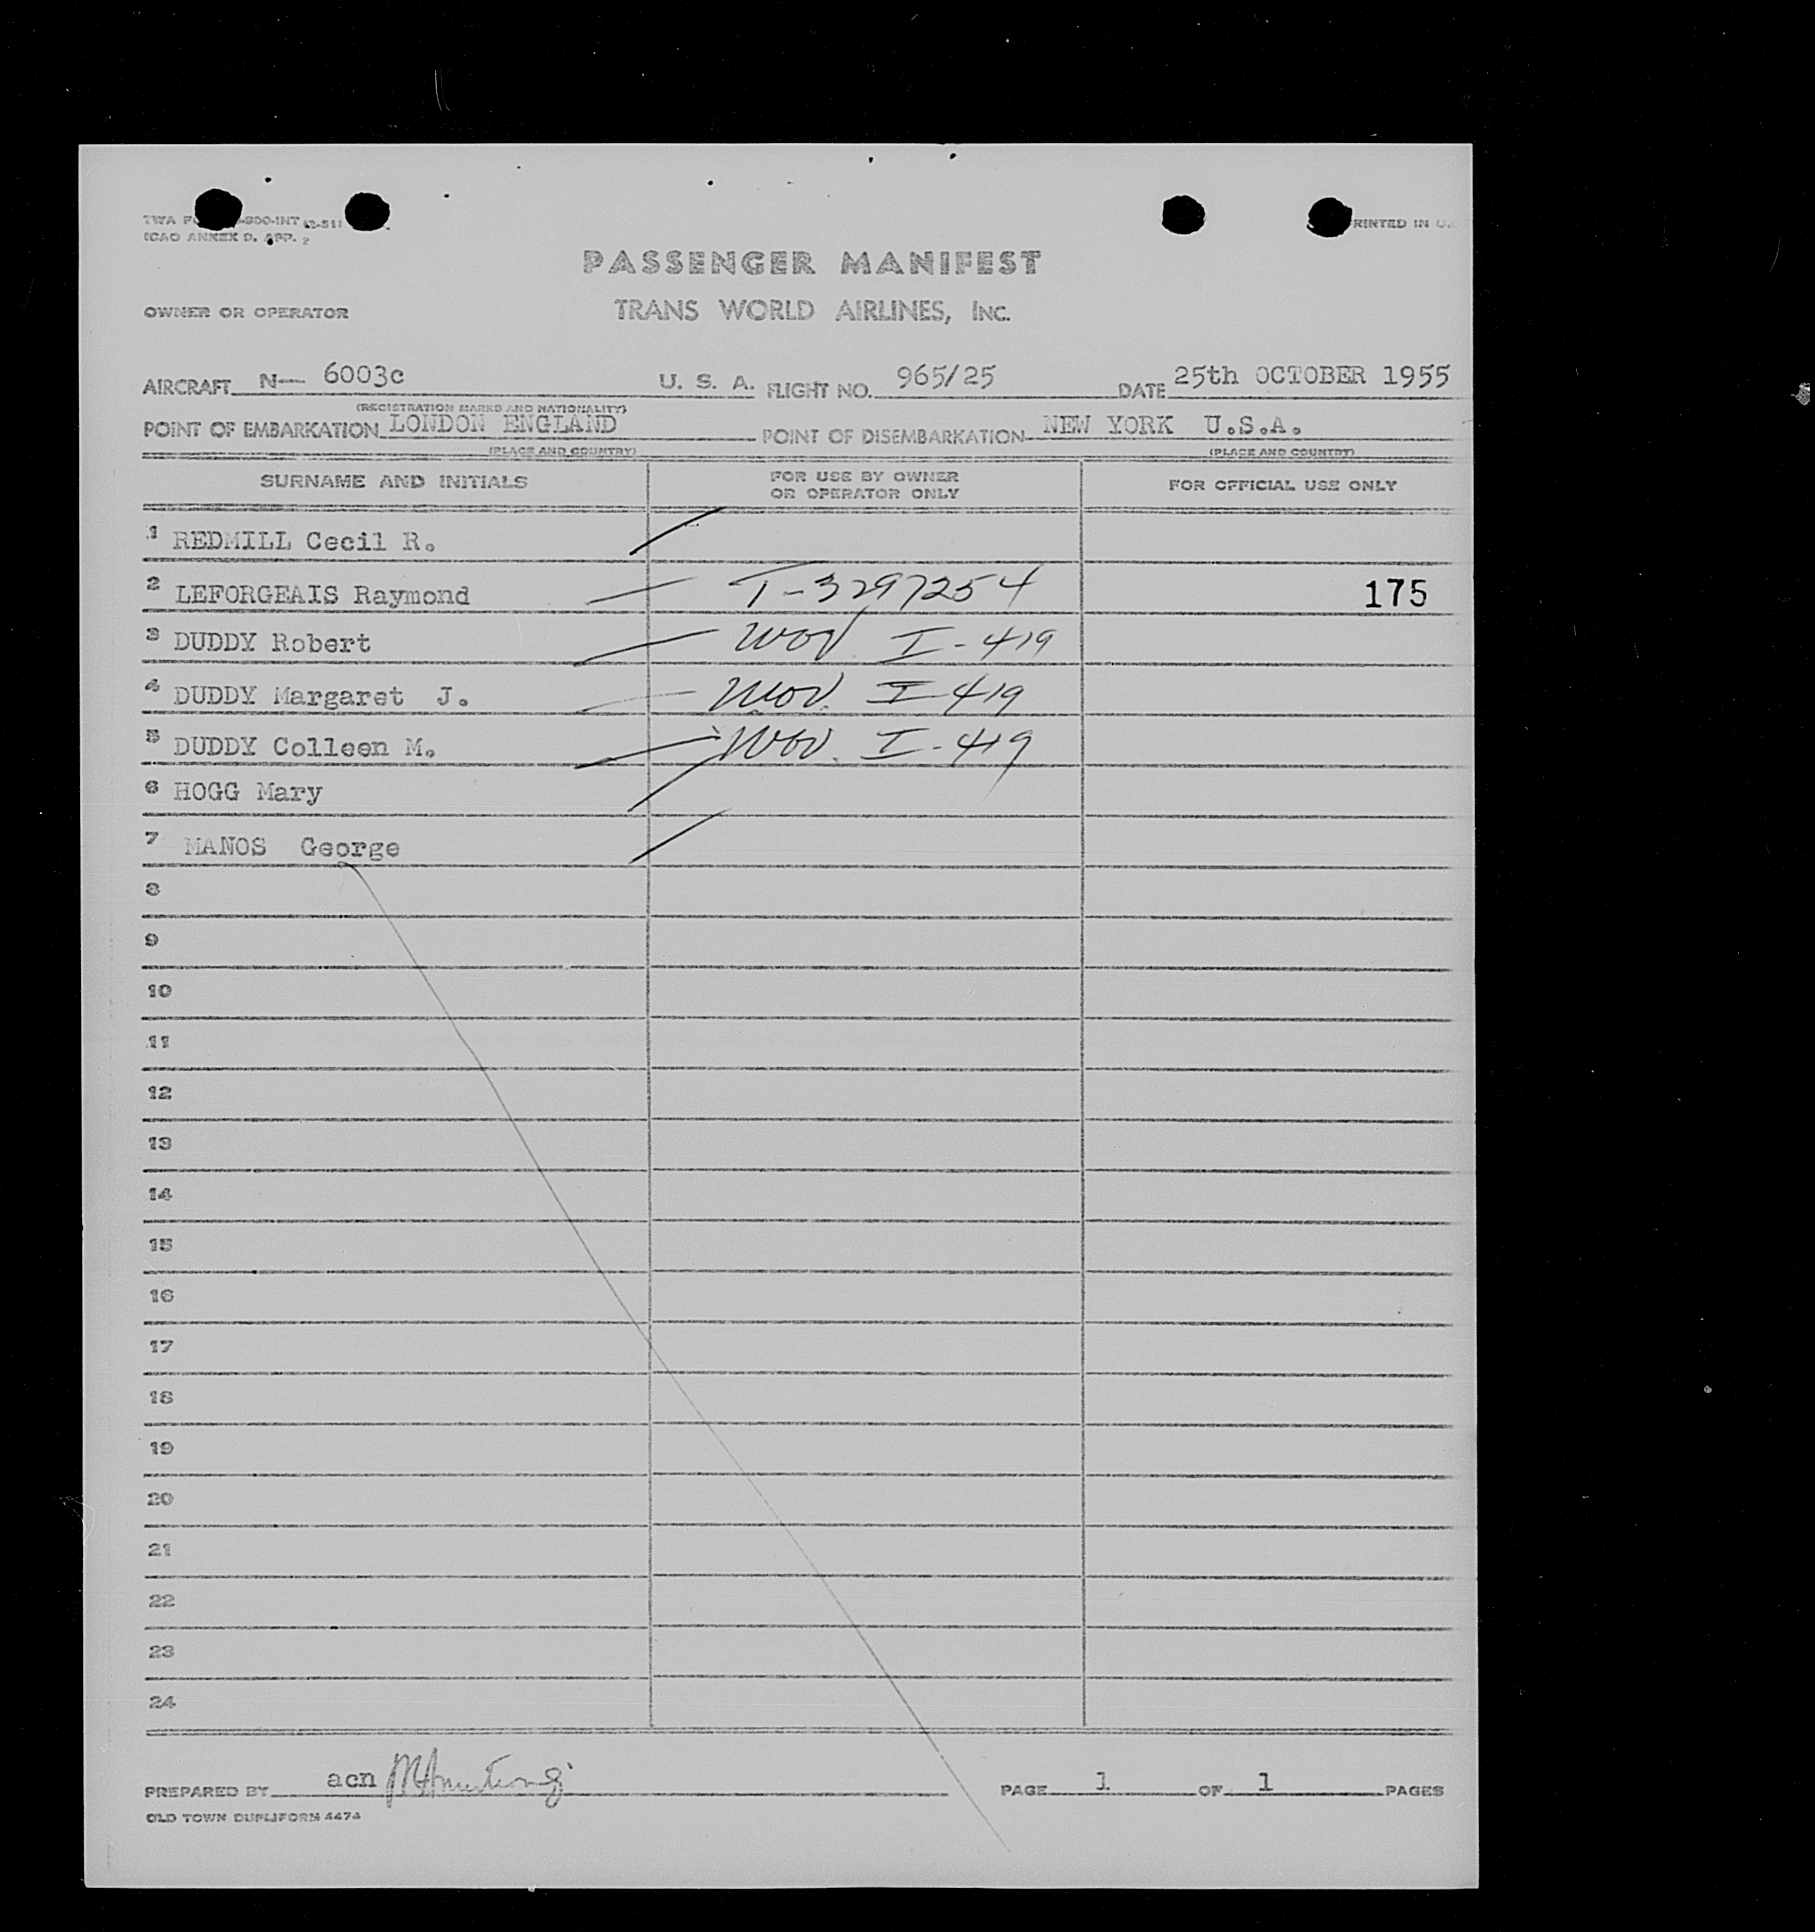 -800-INT
ICAO ANNEX 9, APP. 2
PRINTED IN U.
PASSENGER MANIFEST
OWNER OR OPERATOR TRANS WORLD AIRLINES, INC.
AIRCRAFT N— 6003c U. S. A. FLIGHT NO. 965/25 DATE 25th OCTOBER 1955
(REGISTRATION MARKS AND NATIONALITY)
POINT OF EMBARKATION LONDON ENGLAND POINT OF DISEMBARKATION NEW YORK U.S.A.
(PLACE AND COUNTRY) (PLACE AND COUNTRY)
SURNAME AND INITIALS FOR USE BY OWNER OR OPERATOR ONLY FOR OFFICIAL USE ONLY
1 REDMILL Cecil R.
2 LEFORGEAIS Raymond T-3297254 175
3 DUDDY Robert I-419
4 DUDDY Margaret J. I-419
5 DUDDY Colleen M. I-419
6 HOGG Mary
7 MANOS George
8
9
10
11
12
13
14
15
16
17
18
19
20
21
22
23
24
PREPARED BY acn PAGE 1 OF 1 PAGES
OLD TOWN DUPLIFORM 4474